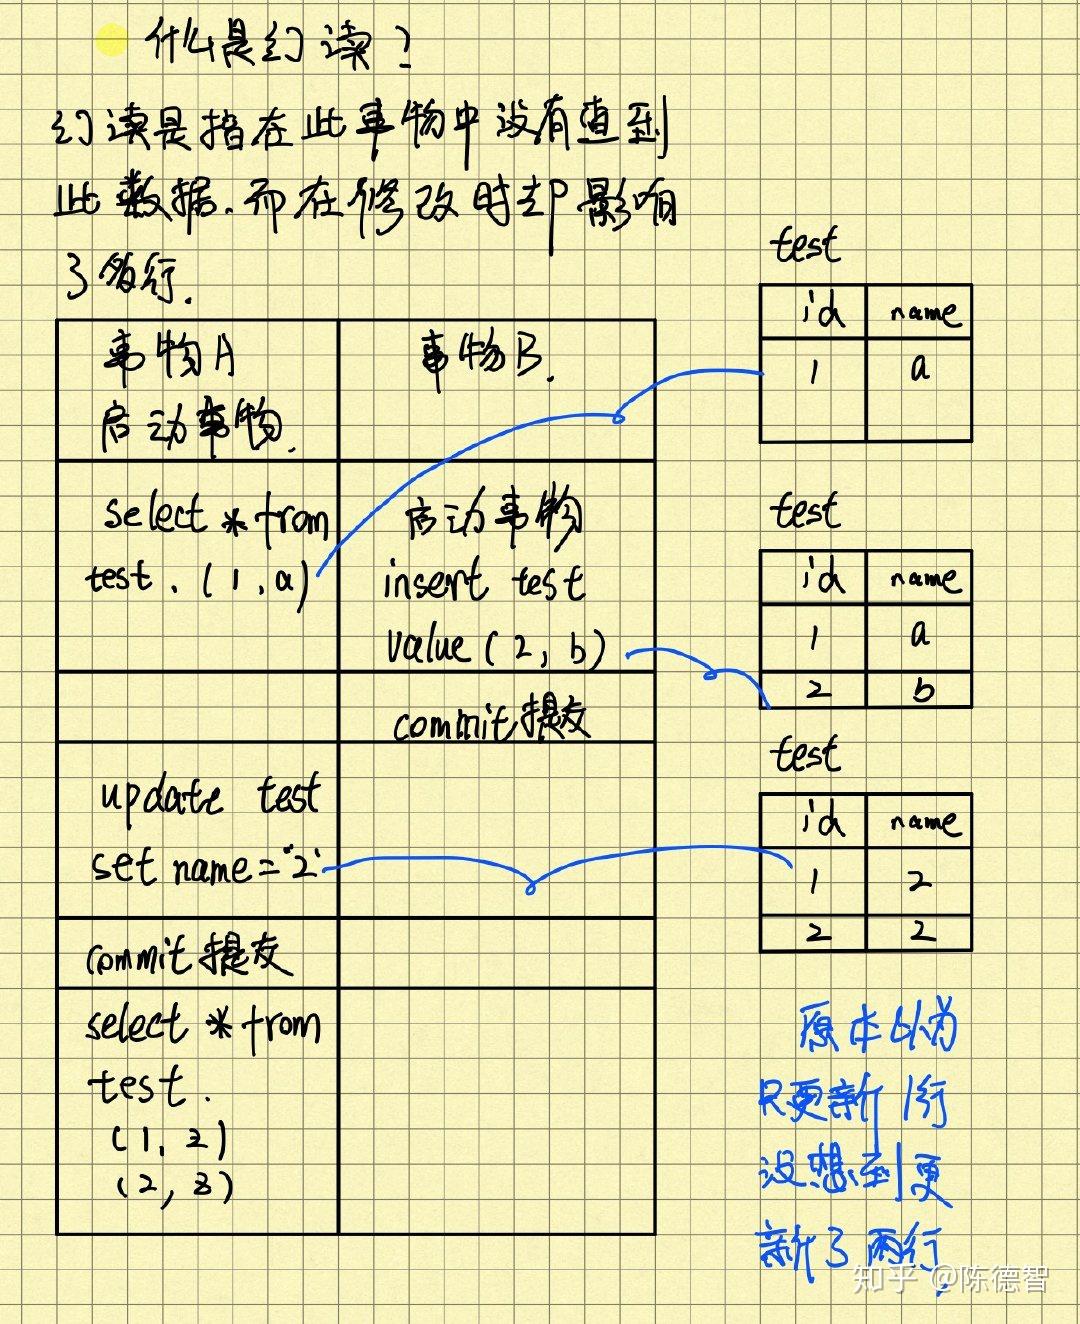 什么是幻读?
幻读是指在此事物中没有查到
此数据.而在修改时却影响
了多行.
事物A
启动事物.
事物B.
select * from
test. (1, a)
启动事物
insert test
value (2, b)
commit提交
update test
set name = '2'
commit提交
select * from
test.
(1, 2)
(2, 2)
test
id name
1 a
test
id name
1 a
2 b
test
id name
1 2
2 2
原本以为
只更新1行
没想到更
新了两行.
知乎 @陈德智